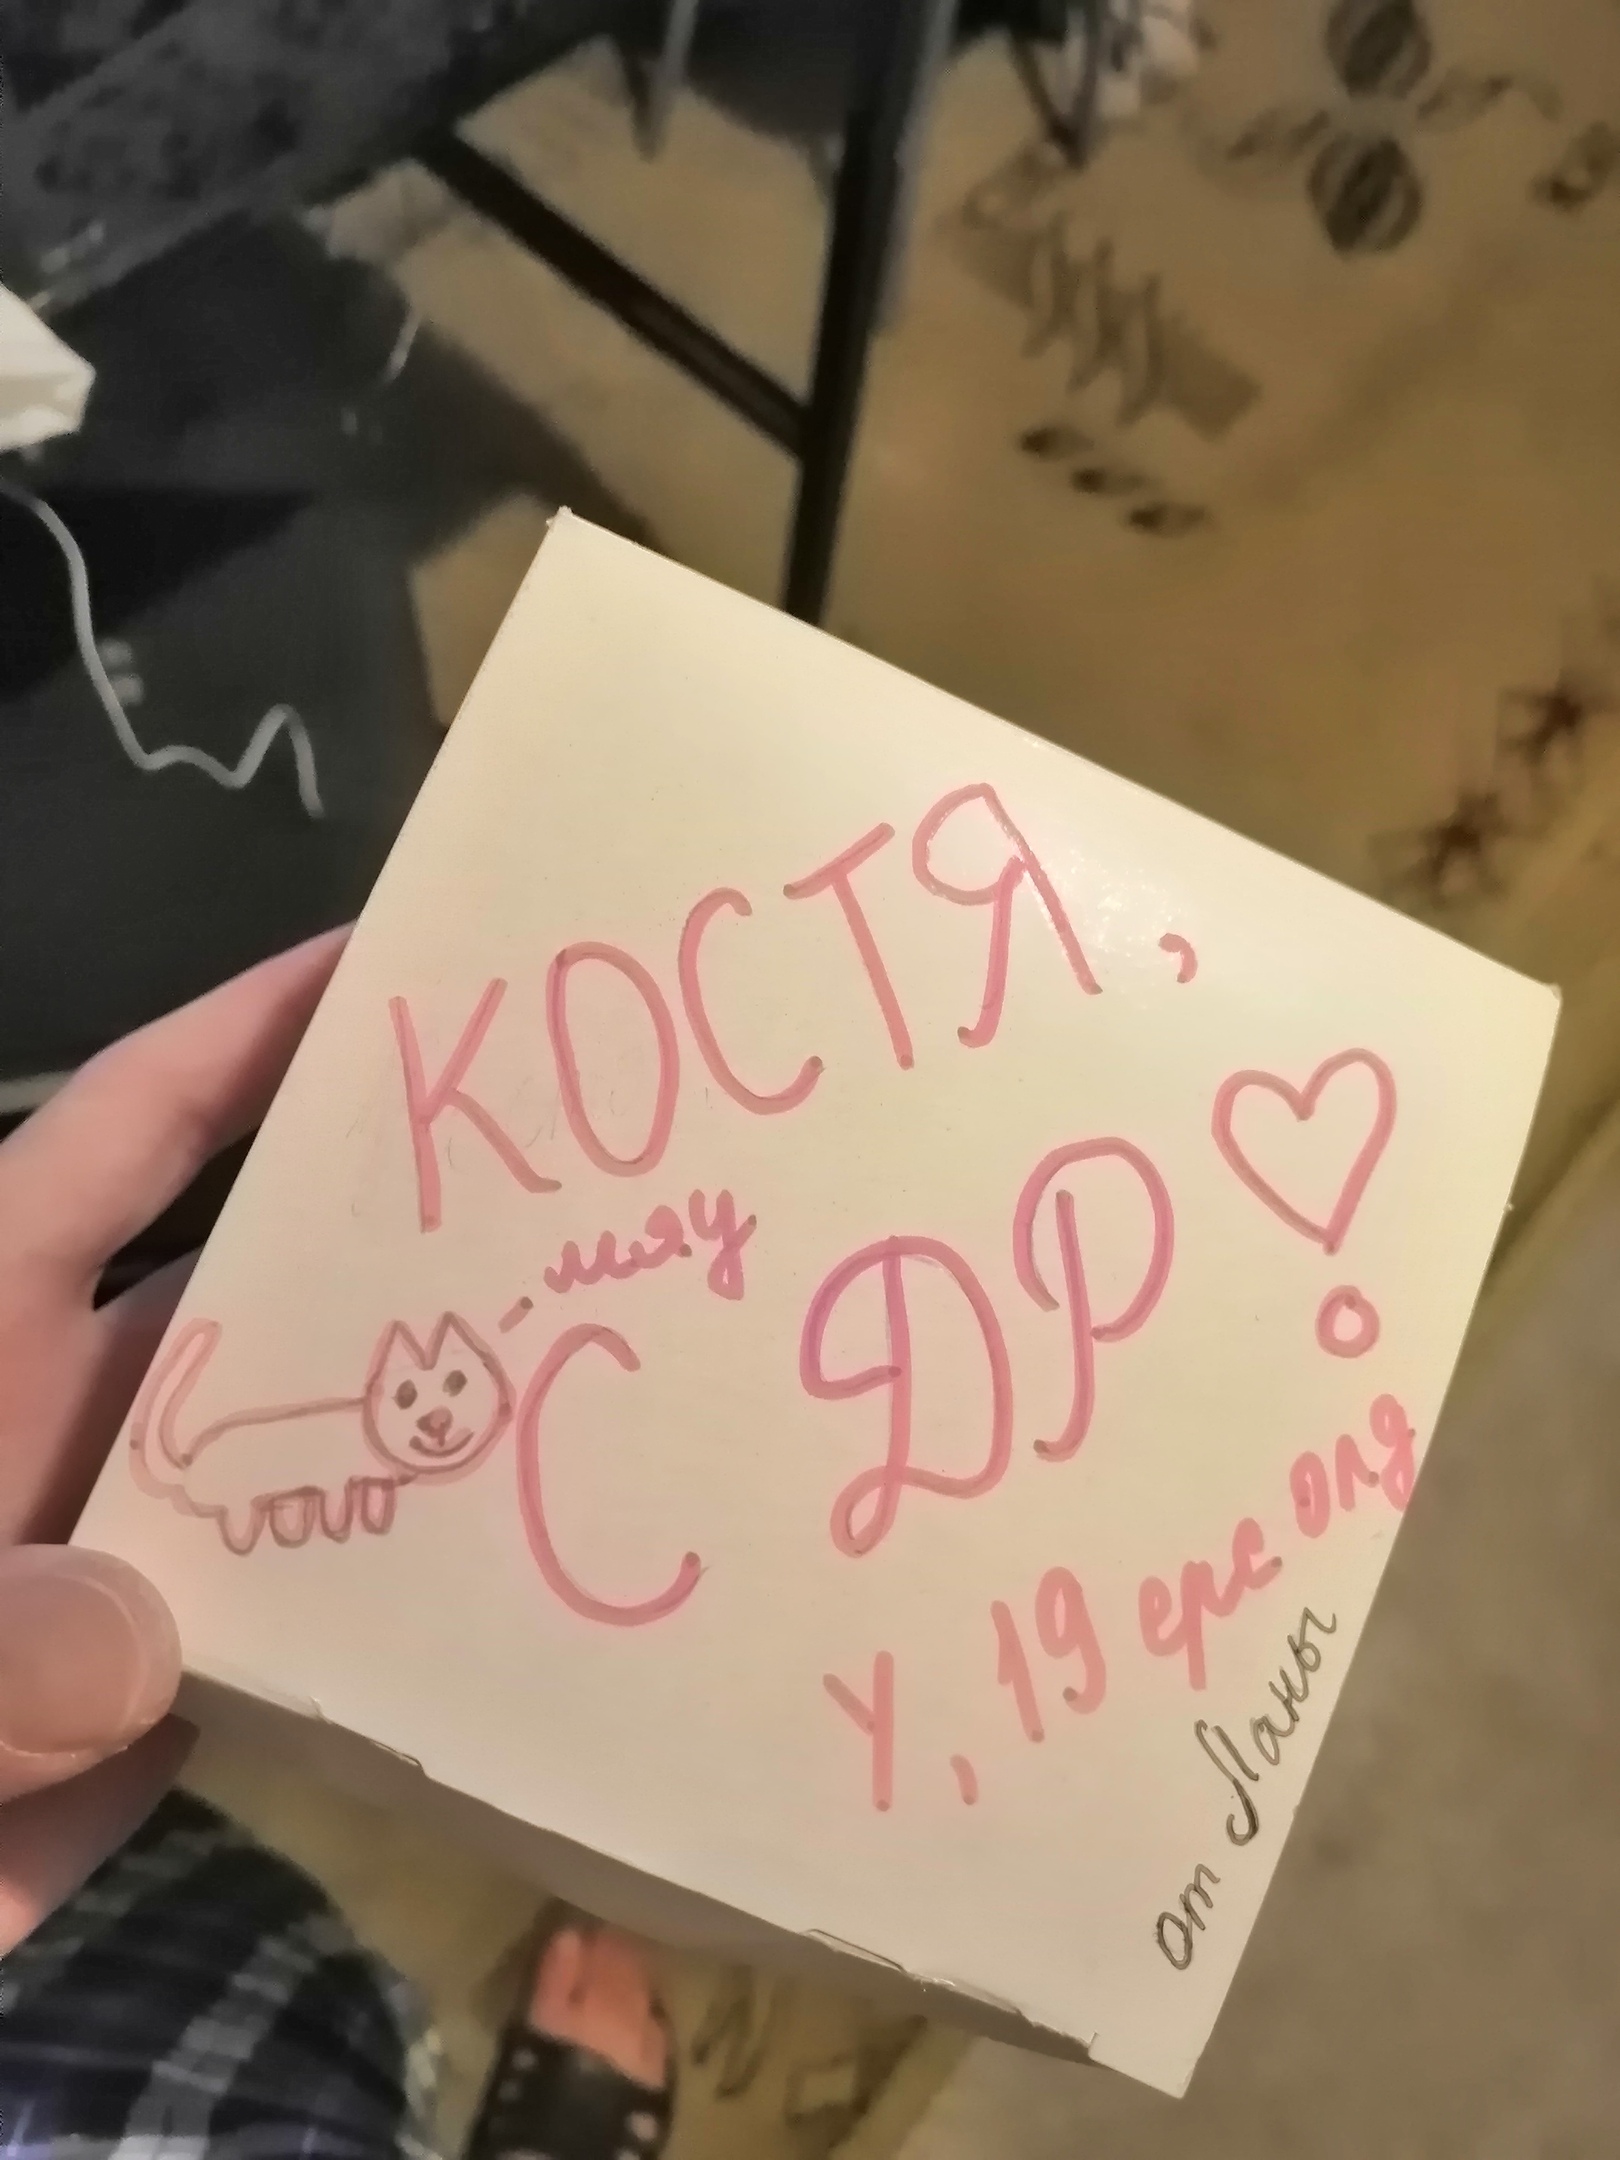 КОСТЯ,
мяу
С ДР
У, 19 ерс олд
от Ланы